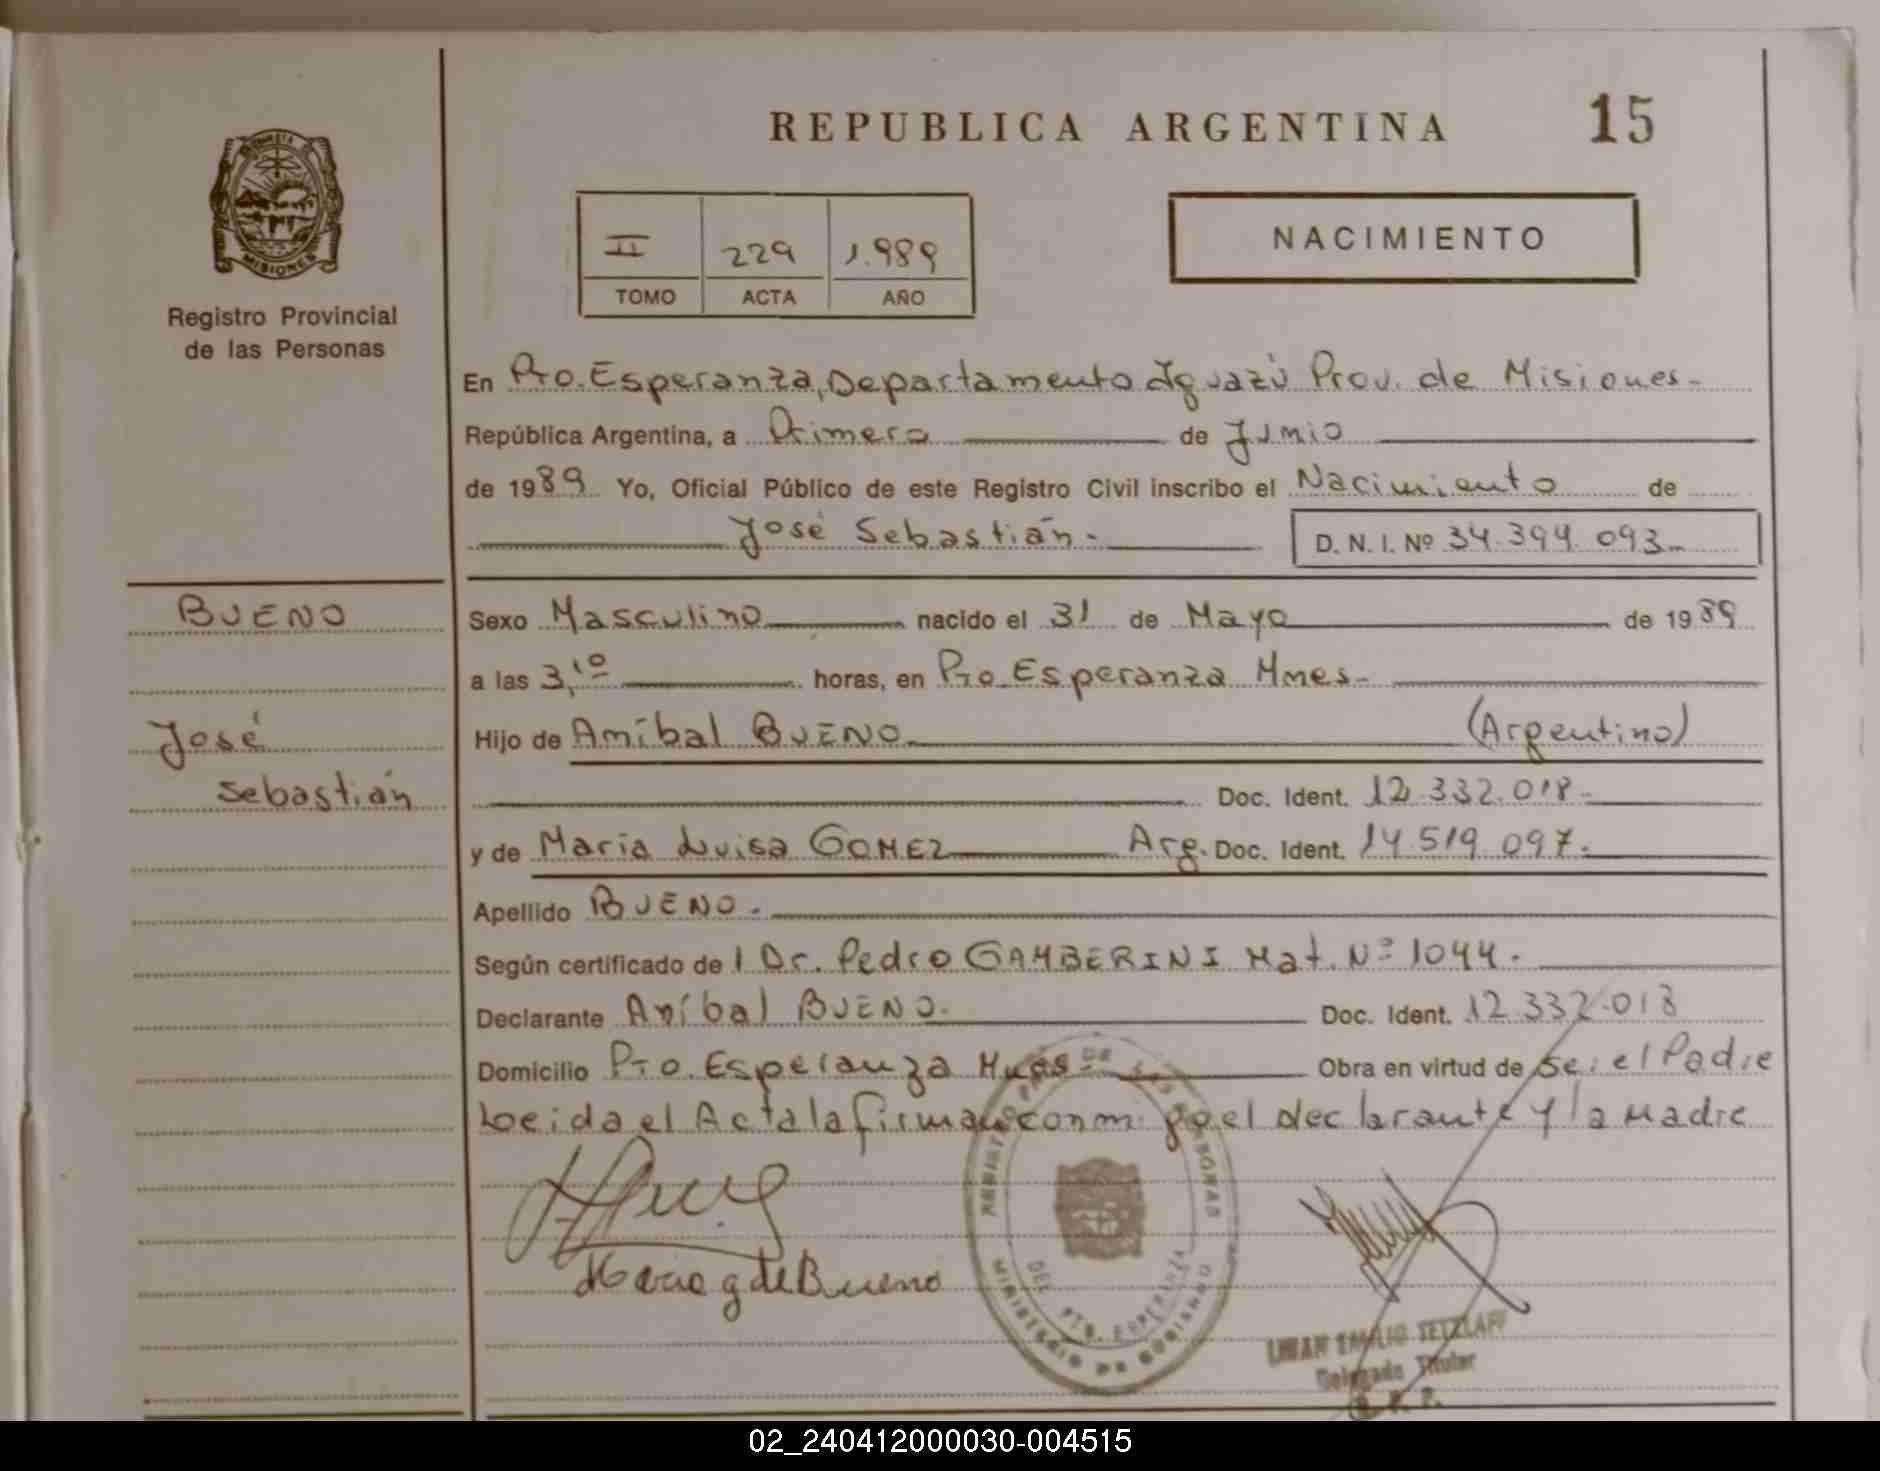 REPUBLICA ARGENTINA 15
MISIONES
Registro Provincial
de las Personas
II 229 1.989
TOMO ACTA AÑO
NACIMIENTO
En Pto. Esperanza, Departamento Iguazú Prov. de Misiones-
República Argentina, a Primero de Junio
de 1989 Yo, Oficial Público de este Registro Civil inscribo el Nacimiento de
José Sebastián.- D. N. I. Nº 34.394.093-
BUENO
José
Sebastián
Sexo Masculino nacido el 31 de Mayo de 1989
a las 3,10 horas, en Pto. Esperanza Mnes-
Hijo de Aníbal BUENO (Argentino)
Doc. Ident. 12.332.018-
y de María Luisa GOMEZ Arg. Doc. Ident. 14.519.097.-
Apellido BUENO.-
Según certificado de l Dr. Pedro GAMBERINI Mat. Nº 1044.-
Declarante Aníbal BUENO.- Doc. Ident. 12.332.018
Domicilio Pto. Esperanza Mnes- Obra en virtud de Ser el Padre
Leida el Acta la firman conmigo el declarante y la Madre
Maria g de Bueno
DE LAS PERSONAS
DEL PTO. ESPERANZA
MINISTERIO DE GOBIERNO
EMILIO TETZLAFF
Delegado Titular
R. P. P.
02_240412000030-004515